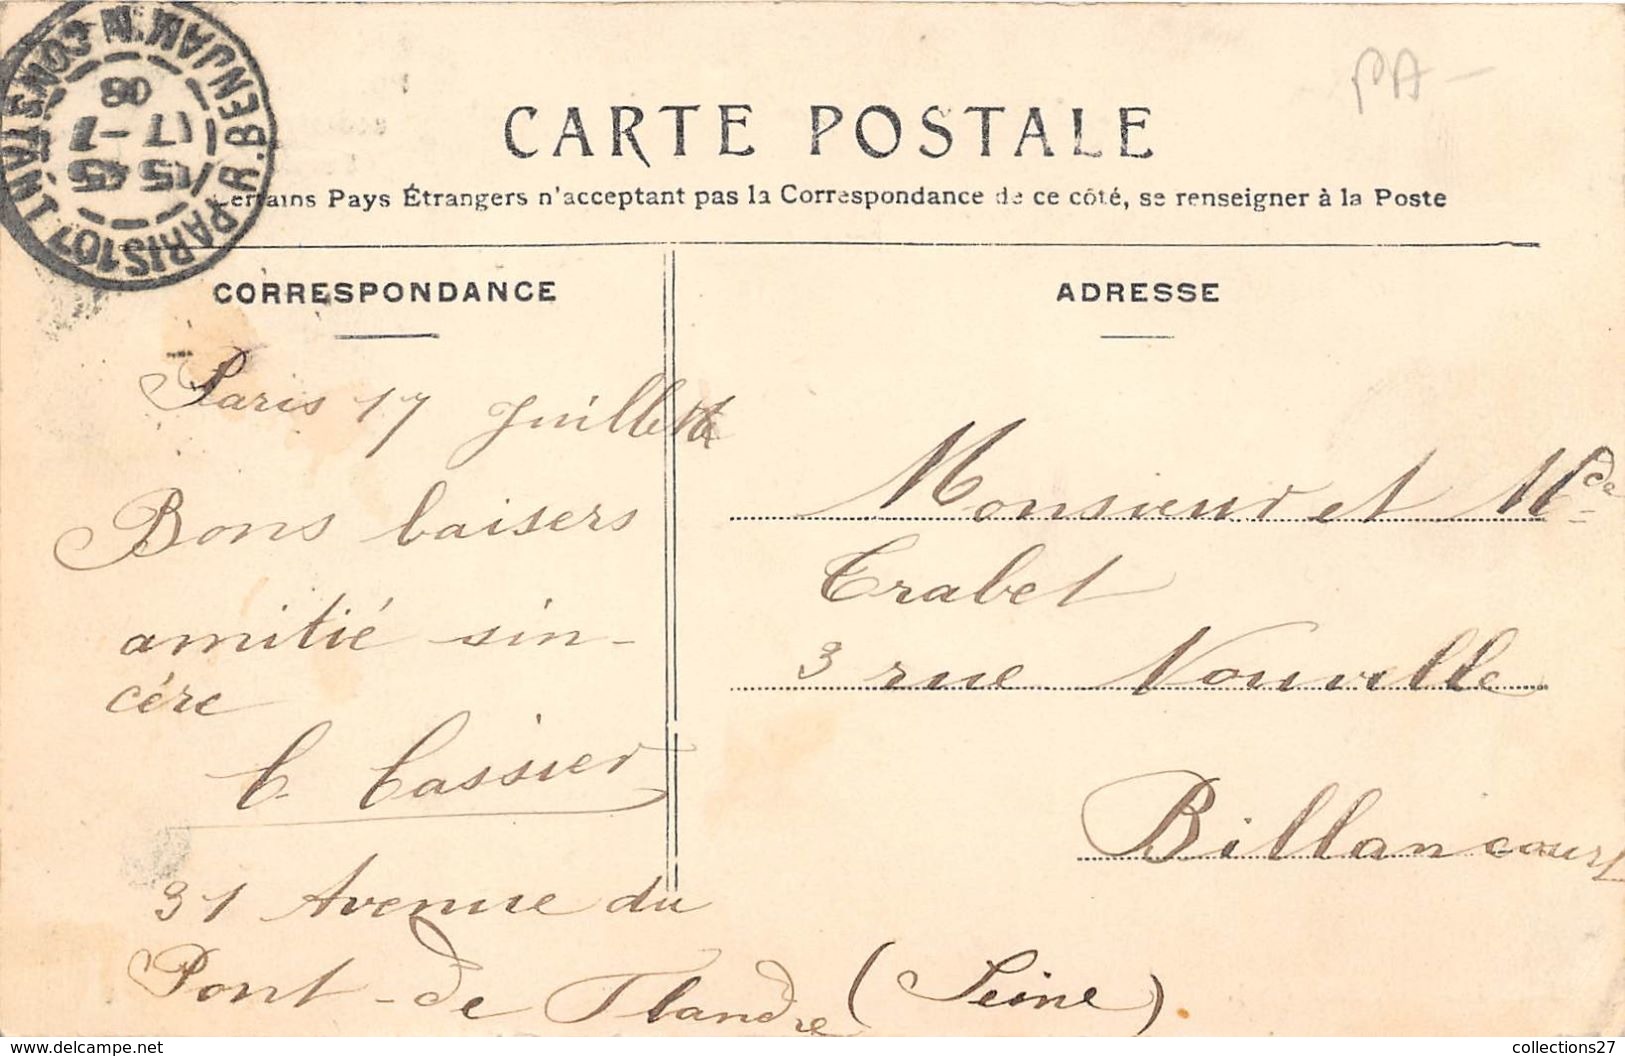 PARIS 107. R. BENJAMIN CONSTANT
15 45
17 -7
08
PA-
CARTE POSTALE
Certains Pays Étrangers n'acceptant pas la Correspondance de ce côté, se renseigner à la Poste
CORRESPONDANCE
Paris 17 Juillet
Bons baisers
amitié sin-
cére
C. Cassier
31 Avenue du
Pont-de Flandre
ADRESSE
Monsieur et Mde
Trabet
3 rue Nouvelle
Billancourt
(Seine).
collections27